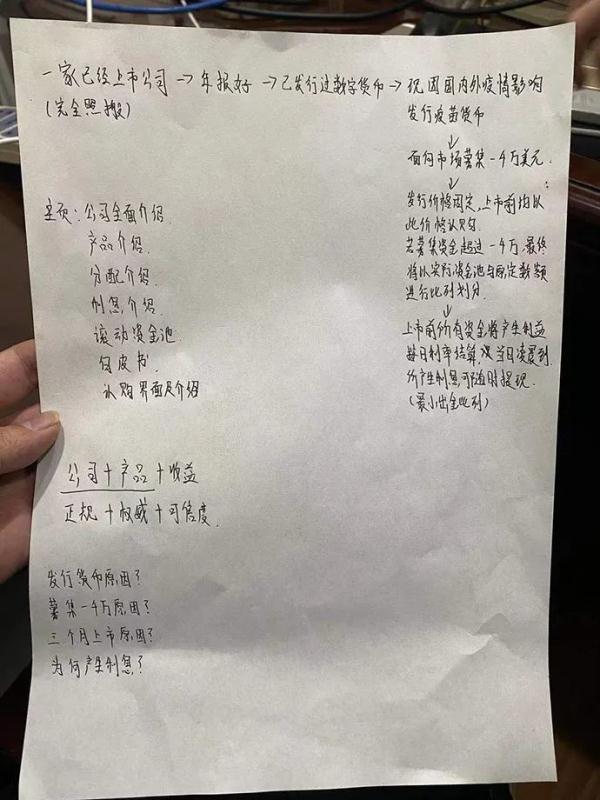 一家已经上市公司→年报好→已发行过数字货币→现因国内外疫情影响
(完全照搬)
发行疫苗货币
↓
面向市场募集一千万美元.
↓
发行价格固定,上市前均以
此价格认购.
若募集资金超过一千万,最终
将以实际资金池与原定数额
进行比列划分.
↓
上市前所有资金将产生利益
每日利率结算,次日凌晨到
所产生利息,可随时提现.
(最小出金比列)
主页:公司全面介绍.
产品介绍.
分配介绍.
利息介绍
滚动资金池.
白皮书.
认购界面及介绍
公司+产品+收益
正规+权威+可信度.
发行货币原因?
募集一千万原因?
三个月上市原因?
为何产生利息?